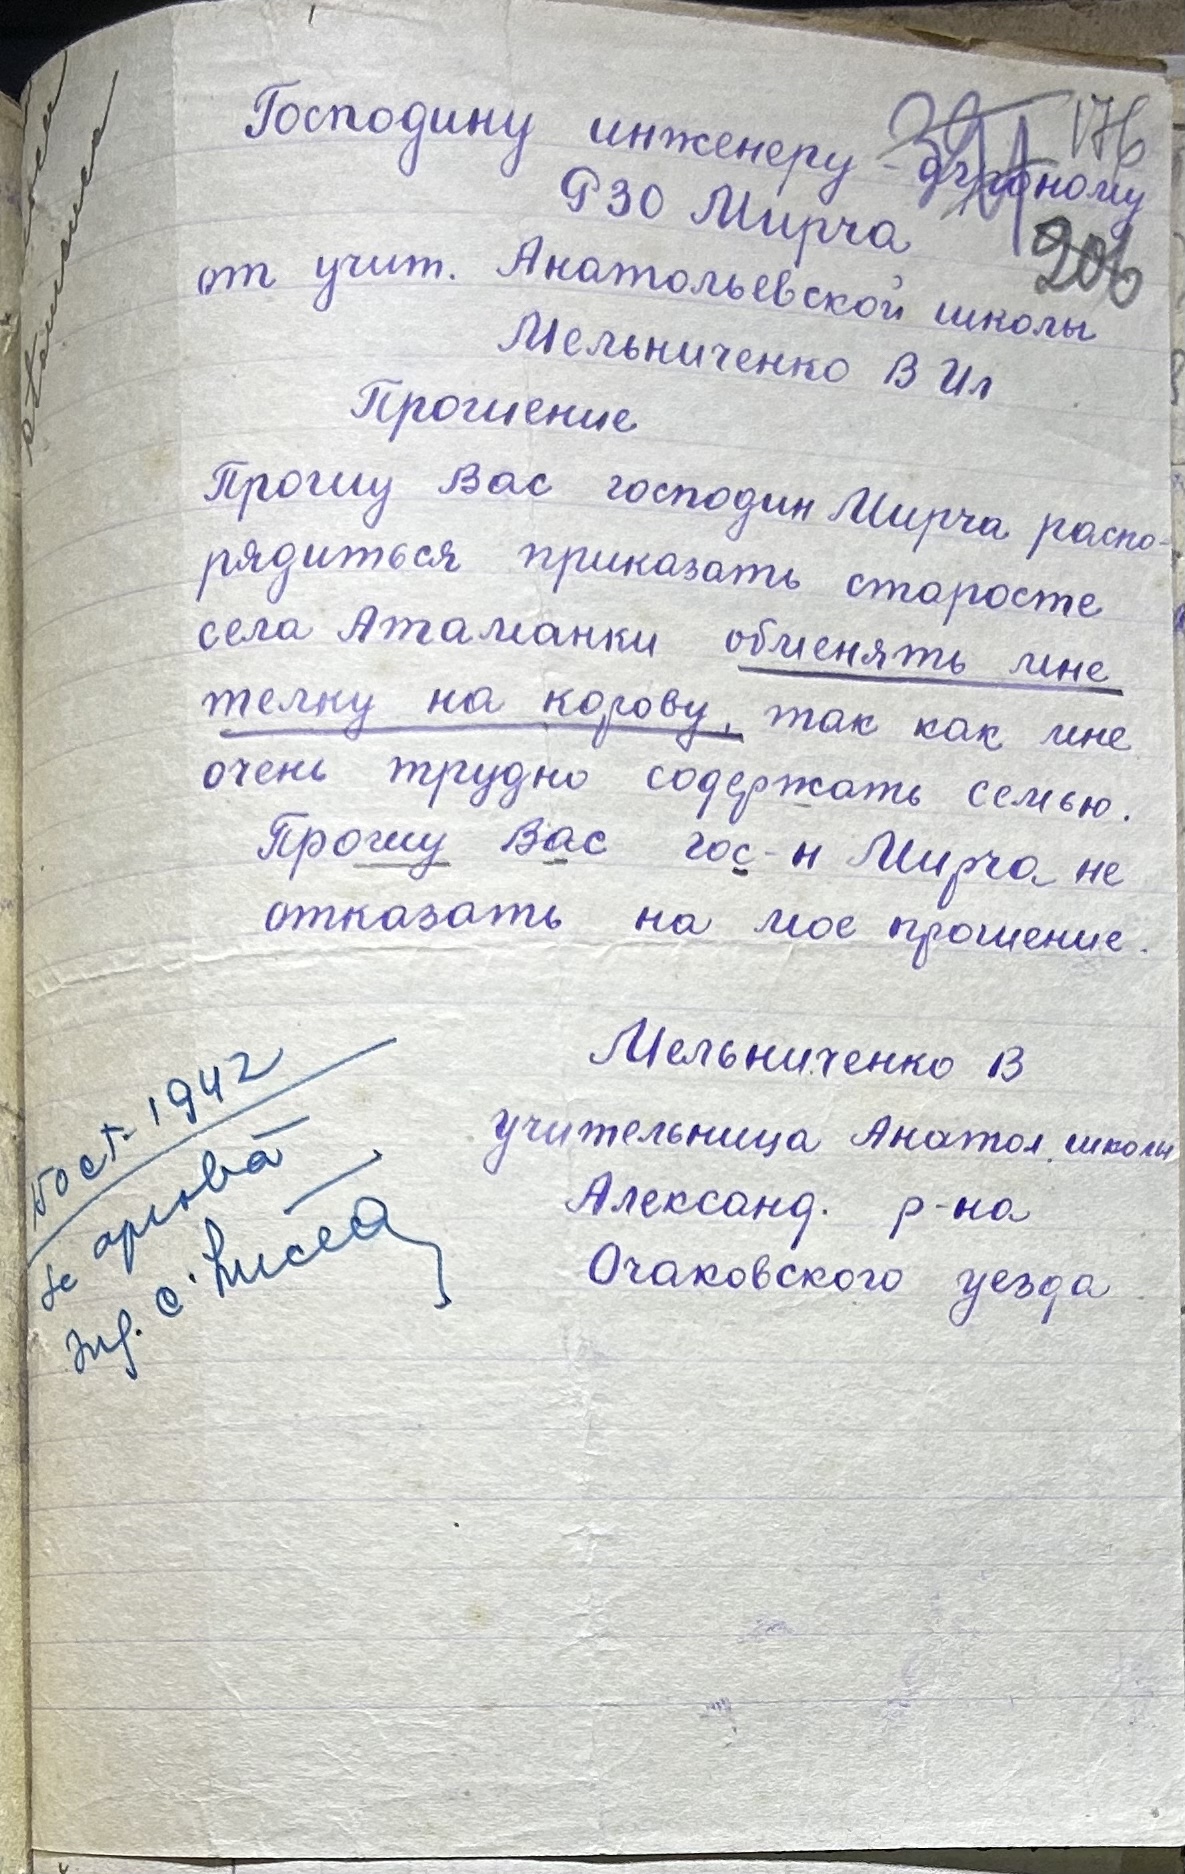 Господину инженеру-агроному
РЗО Мирча
от учит. Анатольевской школы
Мельниченко В Ил
Прошение
Прошу Вас господин Мирча распо-
рядиться приказать старосте
села Атаманки обменять мне
телку на корову, так как мне
очень трудно содержать семью.
Прошу Вас гос-н Мирча не
отказать на мое прошение.
Мельниченко В
учительница Анатол. школы
Александ. р-на
Очаковского уезда
176
206
1942
se aprobă
Ing.